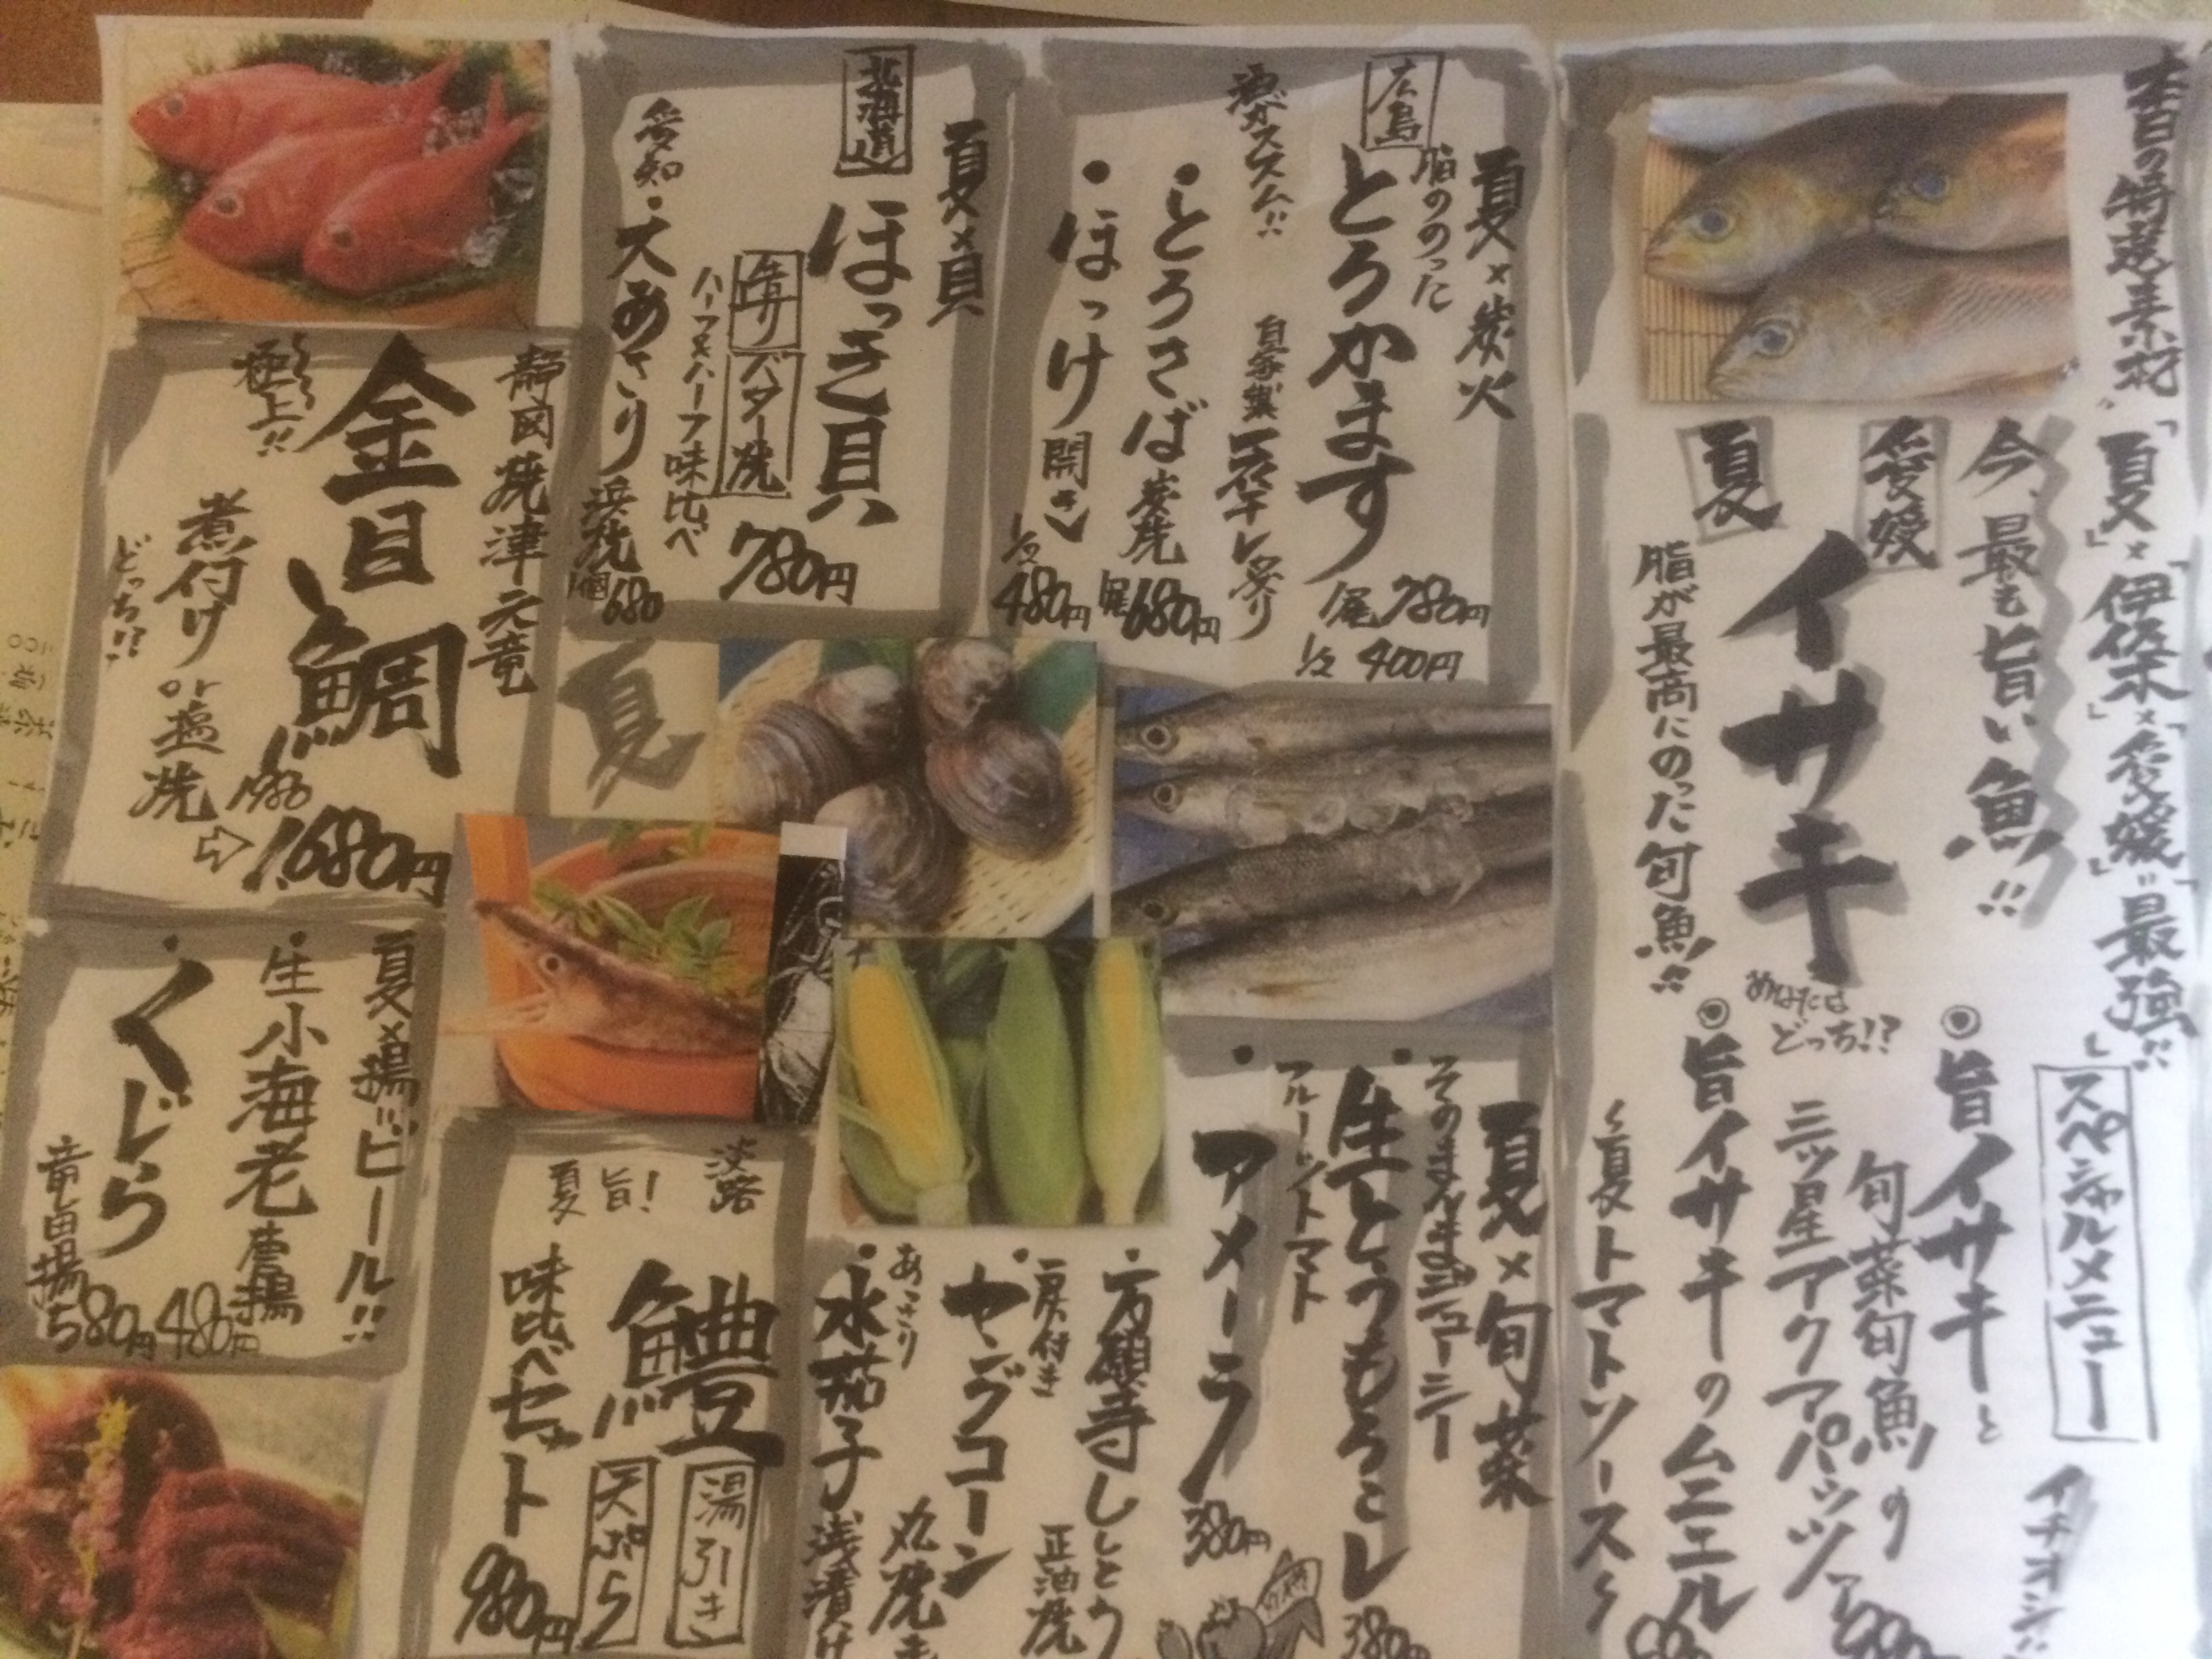 本日の特選素材
「夏」×「伊佐木」×「愛媛」=「最強!!」
今、最も旨い魚!!
愛媛
イサキ
夏
脂が最高にのった旬魚!!
スペシャルメニュー
イチオシ!!
◎旨イサキと
旬菜旬魚の
三ッ星アクアパッツァ
あなたは
どっち!?
◎旨イサキのムニエル
~夏トマトソース~
夏×炭火
広島
脂ののった
とろかます
1尾 780円
1/2 400円
酒がススム!!
自家製
・とろさば
炭焼
680円
・ほっけ
開き
1/2
480円
夏×貝
北海道
ほっき貝
780円
造り
バター焼
ハーフ&ハーフ味比べ
愛知・大あさり
浜焼
1個680
夏
静岡焼津
金目鯛
極上!!
煮付け
or
塩焼
どっち!?
1980
⇨1,680円
夏×揚=ビール!!
・生小海老
唐揚
480円
・くじら
竜田揚
580円
淡路
夏旨!
鱧
湯引き
天ぷら
味比べセット
980円
夏×旬菜
そのまんまジューシー
・生とうもろこし
380円
フルーツトマト
・アメーラ
380円
・万願寺ししとう
正油焼
皮付き
・ヤングコーン
丸焼き
あっさり
・水茄子
浅漬け